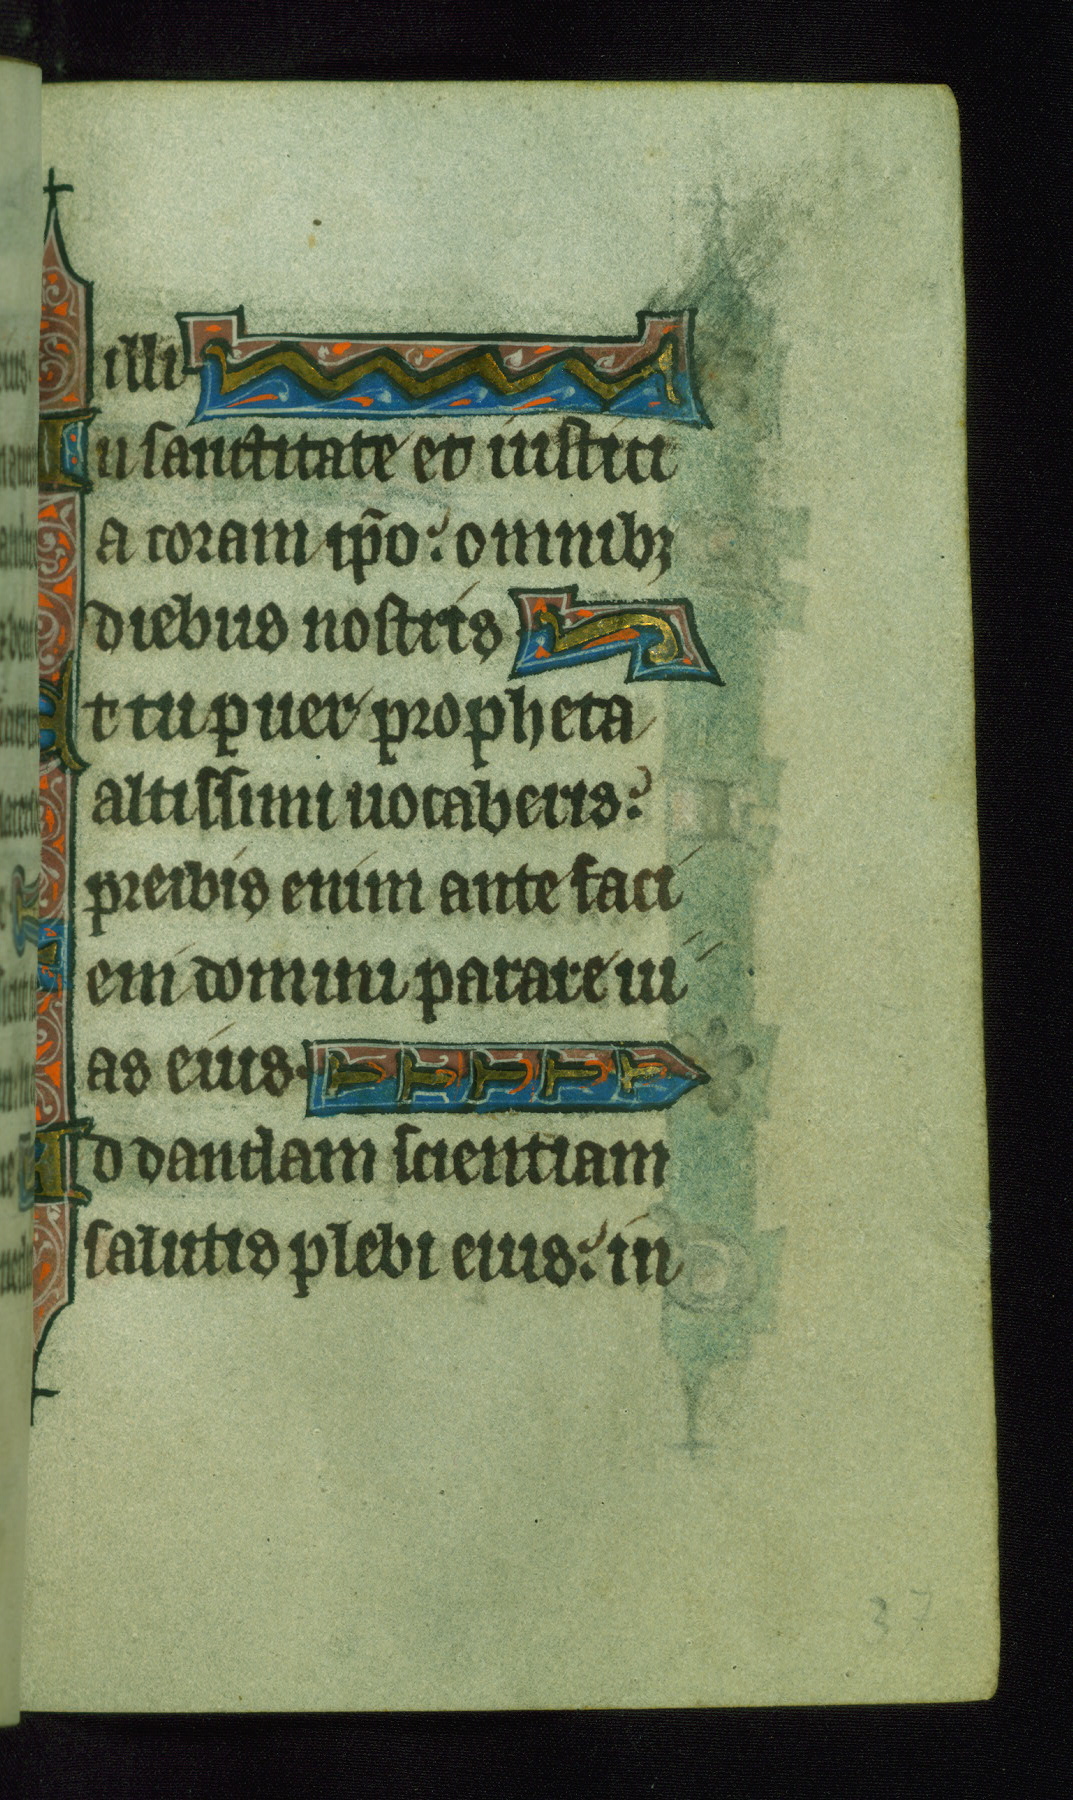 illi
Iu sanctitate et iusticì
a coram ip̃o: omnibꝫ
diebus nostris
Et tu puer propheta
altissimi uocaberis:
preibis enim ante faci
em domini parare ui
as eius.
Ad dandam scientiam
salutis plebi eius: in
37